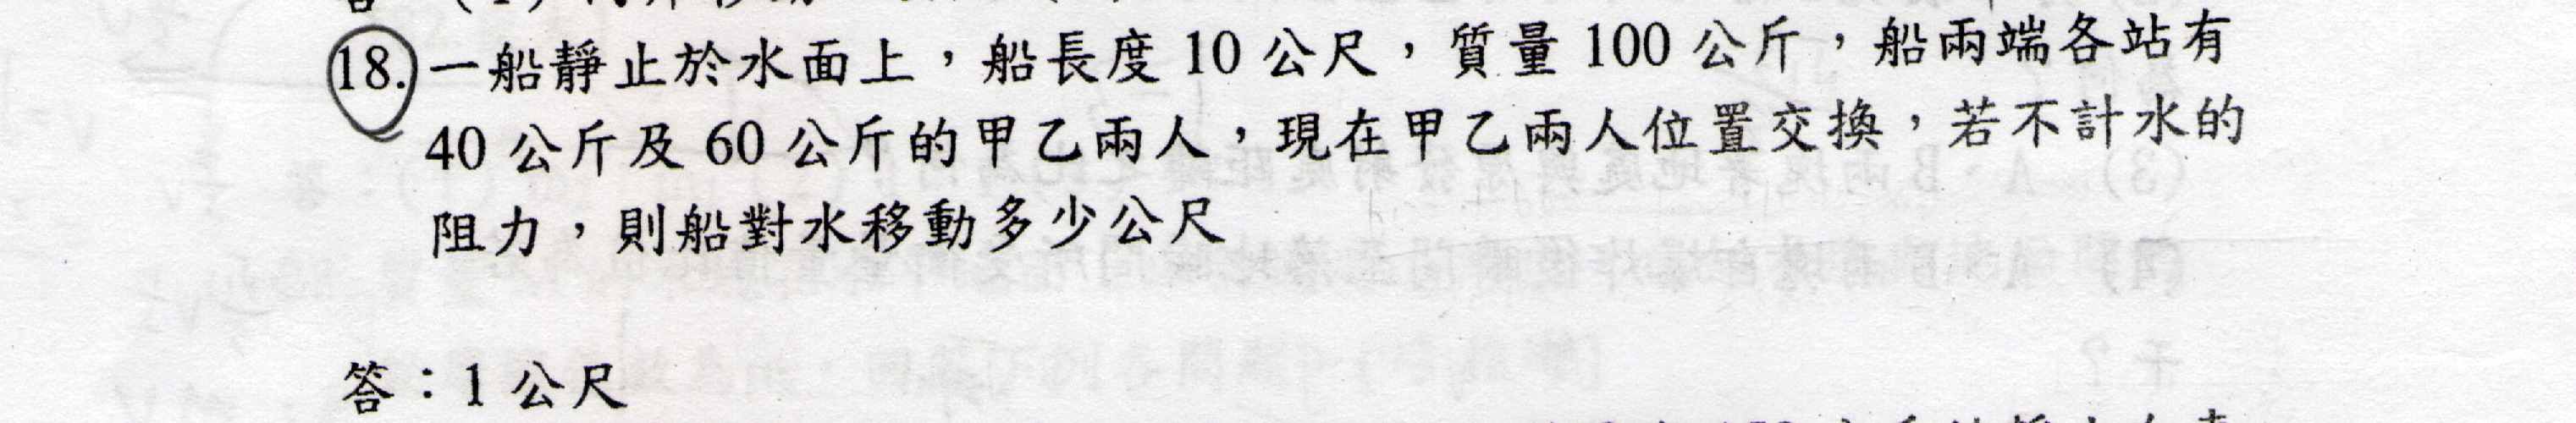 18. 一船靜止於水面上，船長度 10 公尺，質量 100 公斤，船兩端各站有
40 公斤及 60 公斤的甲乙兩人，現在甲乙兩人位置交換，若不計水的
阻力，則船對水移動多少公尺
答：1 公尺